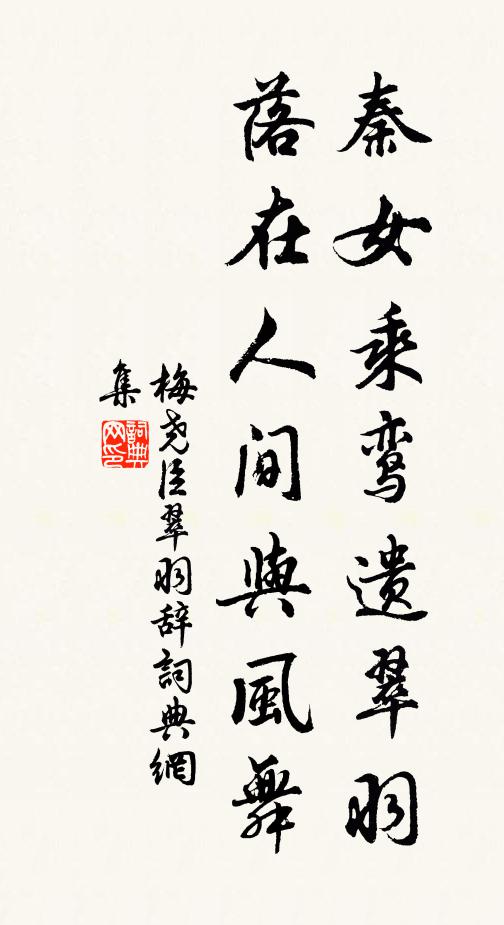 秦女乘鸾遗翠羽
落在人间與風舞
梅尧臣翠羽辞詞典網
集
詞典
网印